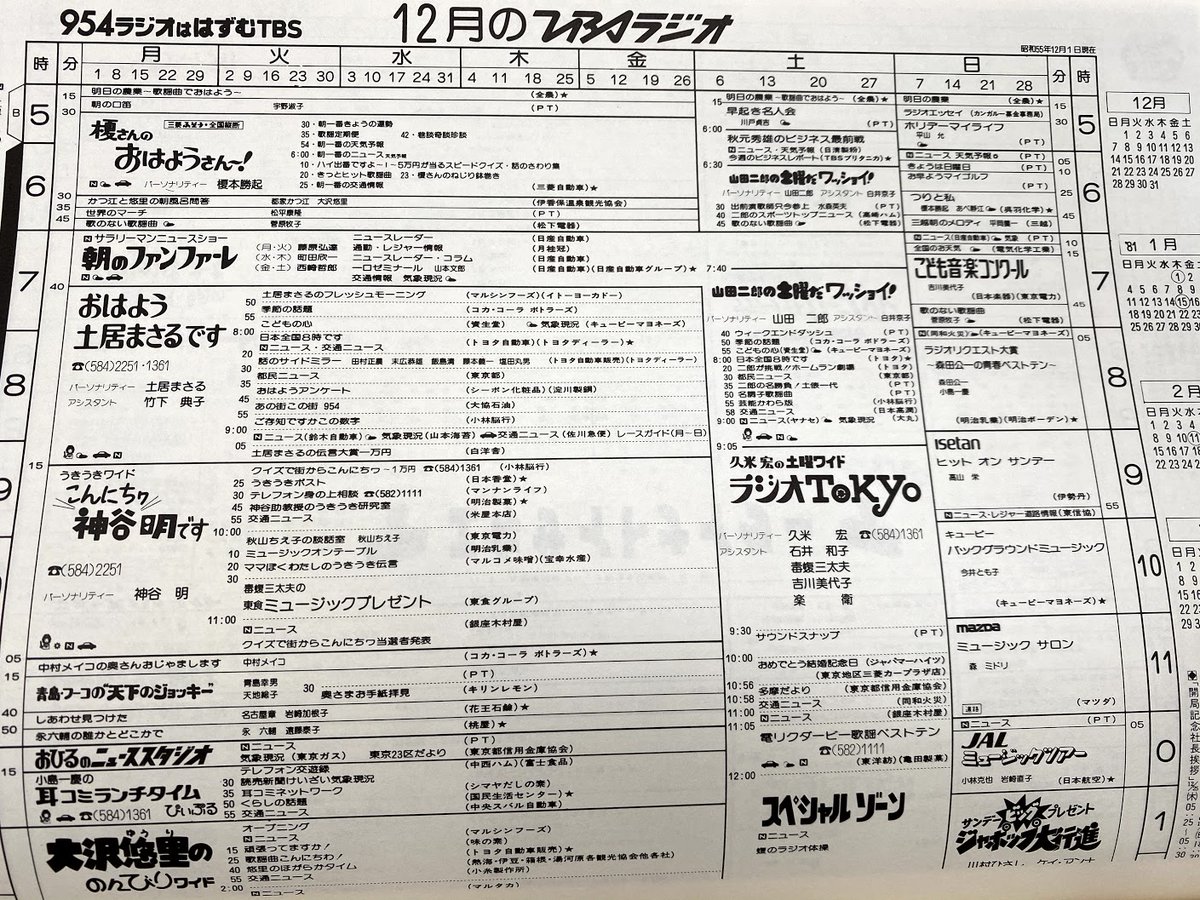 954ラジオははずむTBS
12月のTBSラジオ
昭和55年12月1日現在
時 分 月 火 水 木 金 土 日 分 時
1 8 15 22 29 2 9 16 23 30 3 10 17 24 31 4 11 18 25 5 12 19 26 6 13 20 27 7 14 21 28
5
15 明日の農業～歌謡曲でおはよう～ (全農)★
朝の口笛 宇野淑子 (PT)
30
榎さんのおはようさん~!
三菱ふそう・全国縦断
パーソナリティー 榎本勝起
30・朝一番きょうの運勢
35・歌謡定期便 42・巷談奇談珍談
54・朝一番の天気予報
6:00・朝一番のニュース 天気予報
10・ハイ出番ですよ～1～5万円が当るスピードクイズ・話のさわり集
20・きっとヒット歌謡曲 23・榎さんのねじり鉢巻き
25・朝一番の交通情報 (三菱自動車)★
6
30 かつ江と悠里の朝風呂問答 都家かつ江 大沢悠里 (伊香保温泉観光協会)
35 世界のマーチ 松平康隆 (PT)
45 歌のない歌謡曲 菅原牧子 (松下電器)
7
N サラリーマンニュースショー
朝のファンファーレ
(月・火) 藤原弘達
(水・木) 町田欣一
(金・土) 西崎哲郎
ニュースレーダー (日産自動車)
通勤・レジャー情報 (月桂冠)
ニュースレーダー・コラム (日産自動車)
一口ゼミナール 山本文郎 (日産自動車)(日産自動車グループ)★ 7:40
交通情報 気象現況
40
おはよう土居まさるです
☎(584)2251・1361
パーソナリティー 土居まさる
アシスタント 竹下 典子
土居まさるのフレッシュモーニング (マルシンフーズ)(イトーヨーカドー)
50 季節の話題 (コカ・コーラ ボトラーズ)
55 こどもの心 (資生堂) 気象現況(キューピーマヨネーズ)
8:00 日本全国8時です (トヨタ自動車)(トヨタディーラー)★
15 Nニュース・交通ニュース
20 話のサイドミラー 田村正晨 末広恭雄 飯島清 藤本義一 塩田丸男 (トヨタ自動車販売)(トヨタディーラー)
30 都民ニュース (東京都)
35 おはようアンケート (シーボン化粧品)(淀川製鋼)
45 あの街この街 954 (大協石油)
50 ご存知ですかこの数字 (小林脳行)
9:00 Nニュース(鈴木自動車) 気象現況(山本海苔) 交通ニュース(佐川急便) レースガイド(月～日)
05 土居まさるの伝言大賞一万円 (白洋舍)
8
15
9
うきうきワイド
こんにちワ神谷明です
☎(584)2251
パーソナリティー 神谷 明
クイズで街からこんにちっ～1万円 ☎(584)1361 (小林脳行)
25 うきうきポスト (日本香堂)★
30 テレフォン身の上相談 ☎(582)1111 (マンナンライフ)
45 神谷助教授のうきうき研究室 (明治製菓)★
55 交通ニュース (米屋本店)
10:00 秋山ちえ子の談話室 秋山ちえ子 (東京電力)
10 ミュージックオンテーブル (明治乳業)
20 ママぼくわたしのうきうき伝言 (マルコメ味噌)(宝幸水産)
30 毒蝮三太夫の
東食ミュージックプレゼント (東食グループ)
11:00 Nニュース (銀座木村屋)
クイズで街からこんにちっ当選者発表
05 中村メイコの奥さんおじゃまします 中村メイコ (コカ・コーラ ボトラーズ)★
15 青島・フーコの“天下のジョッキー” 青島幸男 天地総子 (PT)
30 奥さまお手紙拝見 (キリンレモン)
40 しあわせ見つけた 名古屋章 岩崎加根子 (花王石鹸)★
50 永六輔の誰かとどこかで 永 六輔 遠藤泰子 (桃屋)★
おひるのニューススタジオ Nニュース (PT)
気象現況(東京ガス) 東京23区だより (東京都信用金庫協会)
15 小島一慶の
耳コミランチタイム ぴいぷる
☎(584)1361
テレフォン交遊録 (中西ハム)(富士食品)
30 読売新聞けいざい気象現況
35 耳コミネットワーク (シマヤだしの素)
50 くらしの話題 (国民生活センター)★
55 交通ニュース (中央スバル自動車)
大沢悠里のゆうゆうのんびりワイド
オープニング (マルシンフーズ)
Nニュース (味の素)
15 頑張ってますか! (トヨタ自動車販売)★
25 歌謡曲こんにちわ! (熱海・伊豆・箱根・湯河原各観光協会他各社)
40 悠里のほがらかタイム (小糸製作所)
55 交通ニュース
2:00 Nニュース (マルタカ)
15 明日の農業～歌謡曲でおはよう～ (全農)★
早起き名人会 川戸貞吉 (PT)
6:00 秋元秀雄のビジネス最前線
Nニュース・天気予報 (日清製粉)
今週のビジネスレポート(TBSブリタニカ)★
6:30 山田二郎の土曜だワッショイ!
パーソナリティー 山田二郎 アシスタント 白井京子
30 出前演歌師只今参上 水森英夫 (PT)
40 二郎のスポーツトップニュース (高崎ハム)
45 歌のない歌謡曲 (松下電器)
山田二郎の土曜だワッショイ!
パーソナリティー 山田 二郎 アシスタント 白井京子
40 ウィークエンドダッシュ (PT)
50 季節の話題 (コカ・コーラ ボトラーズ)
55 こどもの心(資生堂) (キューピーマヨネーズ)
8:00 日本全国8時です (トヨタ)★
20 二郎が挑戦!ホームラン劇場 (トヨタ)
30 都民ニュース (東京都)
35 二郎の名勝負!土俵一代 (PT)
50 名調子歌謡曲 (PT)
55 芸能かわら版 (小林脳行)
58 交通ニュース (日本高潤)
9:00 Nニュース(ヤナセ) 気象現況 (大丸)
9:05
久米宏の土曜ワイド
ラジオTOKYO
パーソナリティー 久米 宏 ☎(584)1361
アシスタント 石井 和子
毒蝮三太夫
吉川美代子
楽 衛
9:30 サウンドスナップ (PT)
10:00 おめでとう結婚記念日 (ジャパマーハイツ)
(東京地区三菱カープラザ店)
10:56 多摩だより (東京都信用金庫協会)
10:58 交通ニュース (同和火災)
11:00 Nニュース (銀座木村屋)
11:05 電リクダービー歌謡ベストテン
☎(582)1111
(東洋紡)(亀田製菓)
12:00
スペシャルゾーン
Nニュース
蝮のラジオ体操
明日の農業 (全農)★ 15
ラジオエッセイ (カンガルー基金事務局) 30
ホリデーマイライフ 平山 允 (PT)
Nニュース 天気予報 (PT) 05
きょうは日曜日 (PT) 10
お早ようマイゴルフ (PT) 25
つりと私 榎本勝起 あべ静江 (呉羽化学)★
三越朝のメロディ 平岡養一 (三越) 45
Nニュース(日産自動車) 気象 (PT) 10
全国のお天気 (電気化学工業) 15
こども音楽コンクール
吉川美代子 (日本楽器)(東京電力)
歌のない歌謡曲 菅原牧子 (松下電器) 45
N(同和火災) (キューピーマヨネーズ) 05
ラジオリクエスト大賞
～森田公一の青春ベストテン～
森田公一
小島一慶
(明治乳業)(明治ボーデン)★
ISETAN
ヒット オン サンデー
高山 栄
(伊勢丹)
Nニュース・レジャー道路情報(東信協) 55
キューピー
バックグラウンドミュージック
今井とも子
(キューピーマヨネーズ)★
mazda
ミュージック サロン
森 ミドリ
道路 (マツダ)
Nニュース (PT) 05
JAL
ミュージックツアー
小林克也 岩崎直子 (日本航空)★
サンデープレゼント
ジャポップ大行進
5 6 7 8 9 10 11 0 1
12月
日月火水木金土
1 2 3 4 5 6
7 8 9 10 11 12 13
14 15 16 17 18 19 20
21 22 23 24 25 26 27
28 29 30 31
'81 1月
日月火水木金
1 2
4 5 6 7 8 9
11 12 13 14 15 16
18 19 20 21 22 23
25 26 27 28 29 30
2月
日月火水